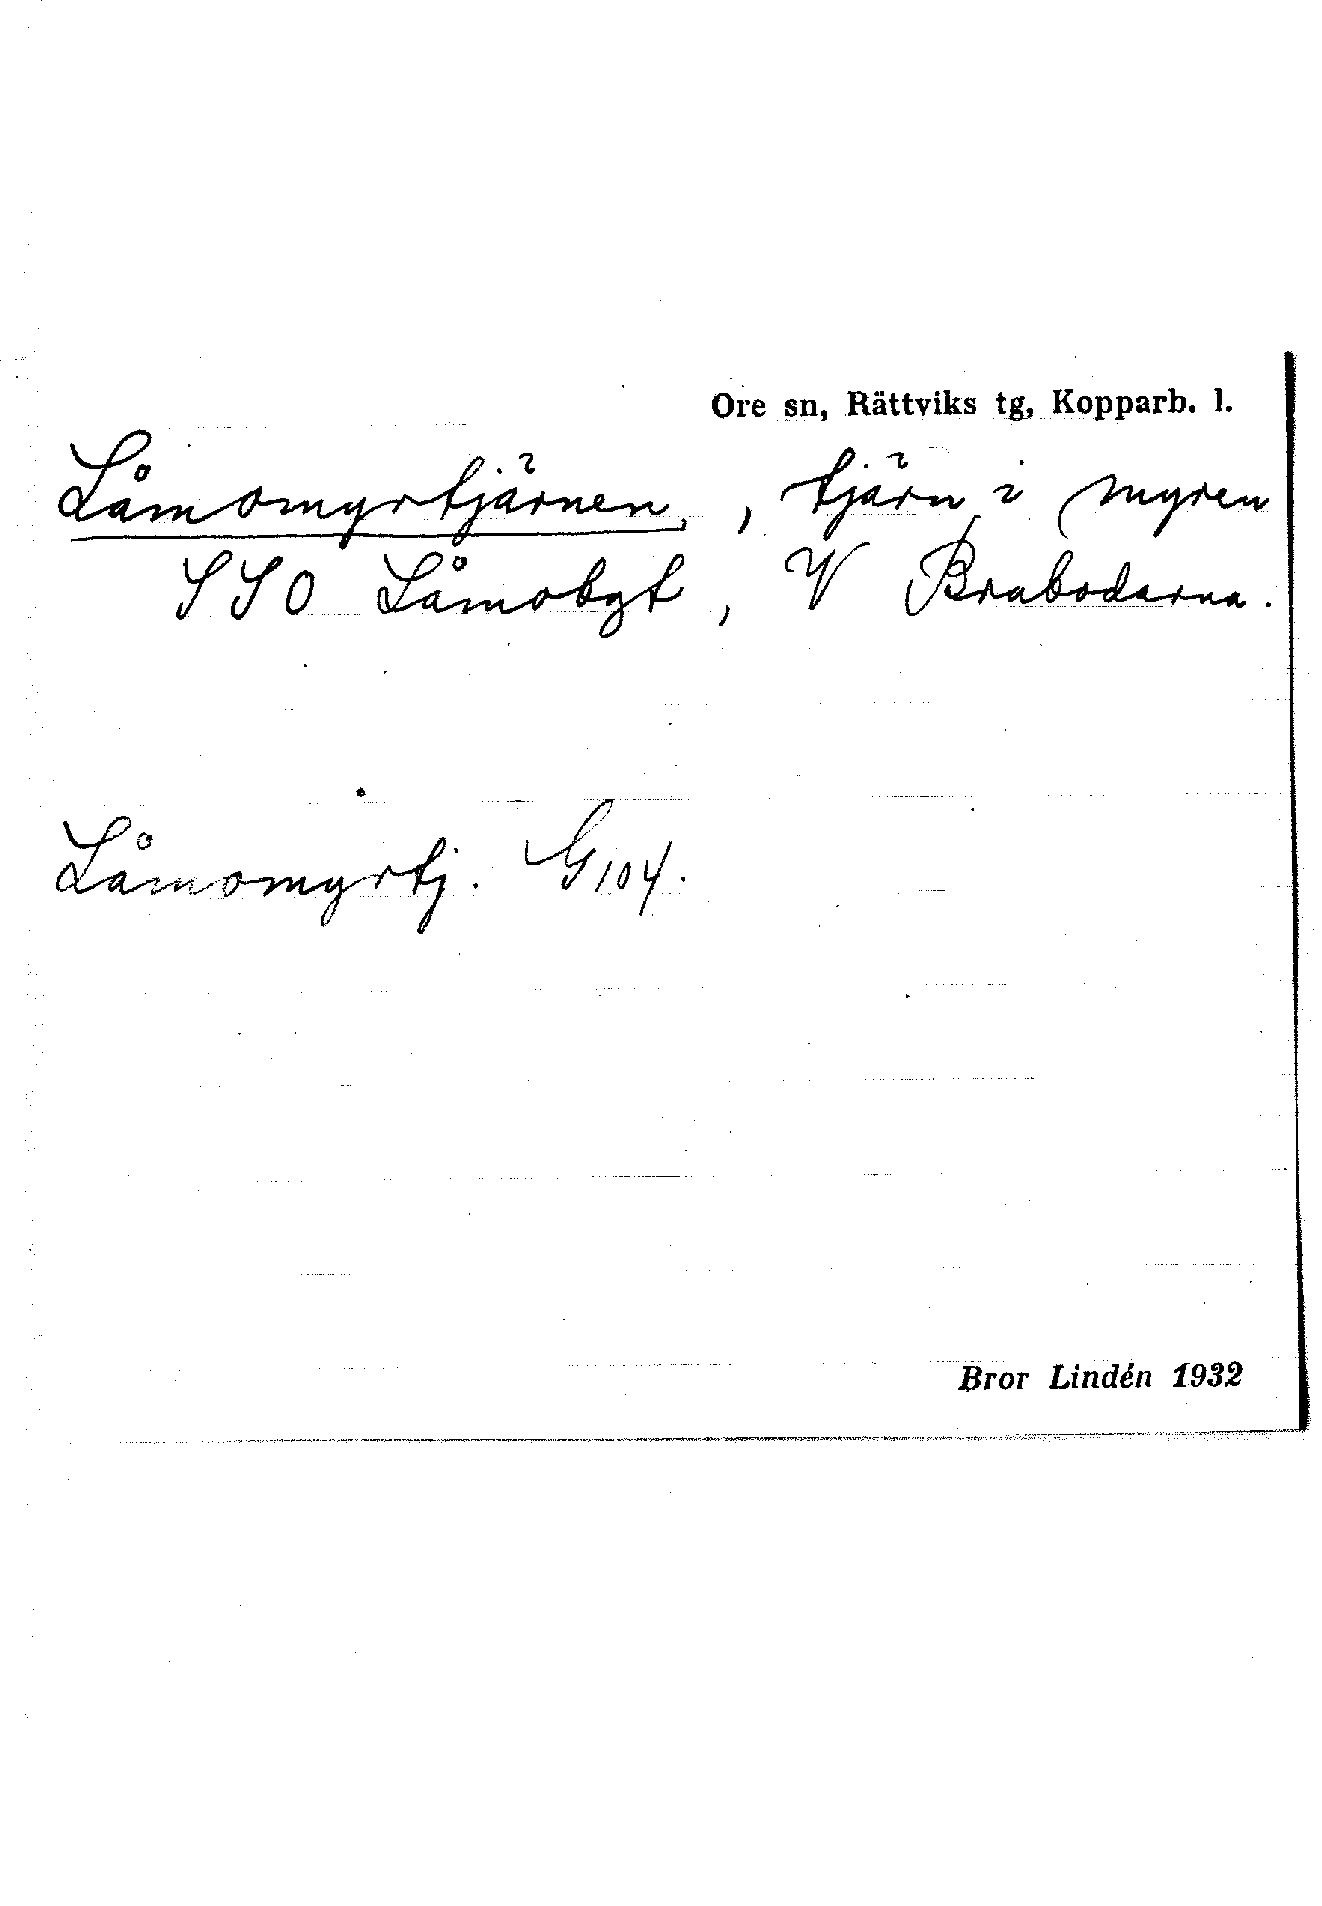 Ore sn, Rättviks tg, Kopparb. l.
Låmomyrtjärnen, tjärn i myren
SSO Låmobgt, V Brabodarna.
Låmomyrtj. G 104.
Bror Lindén 1932